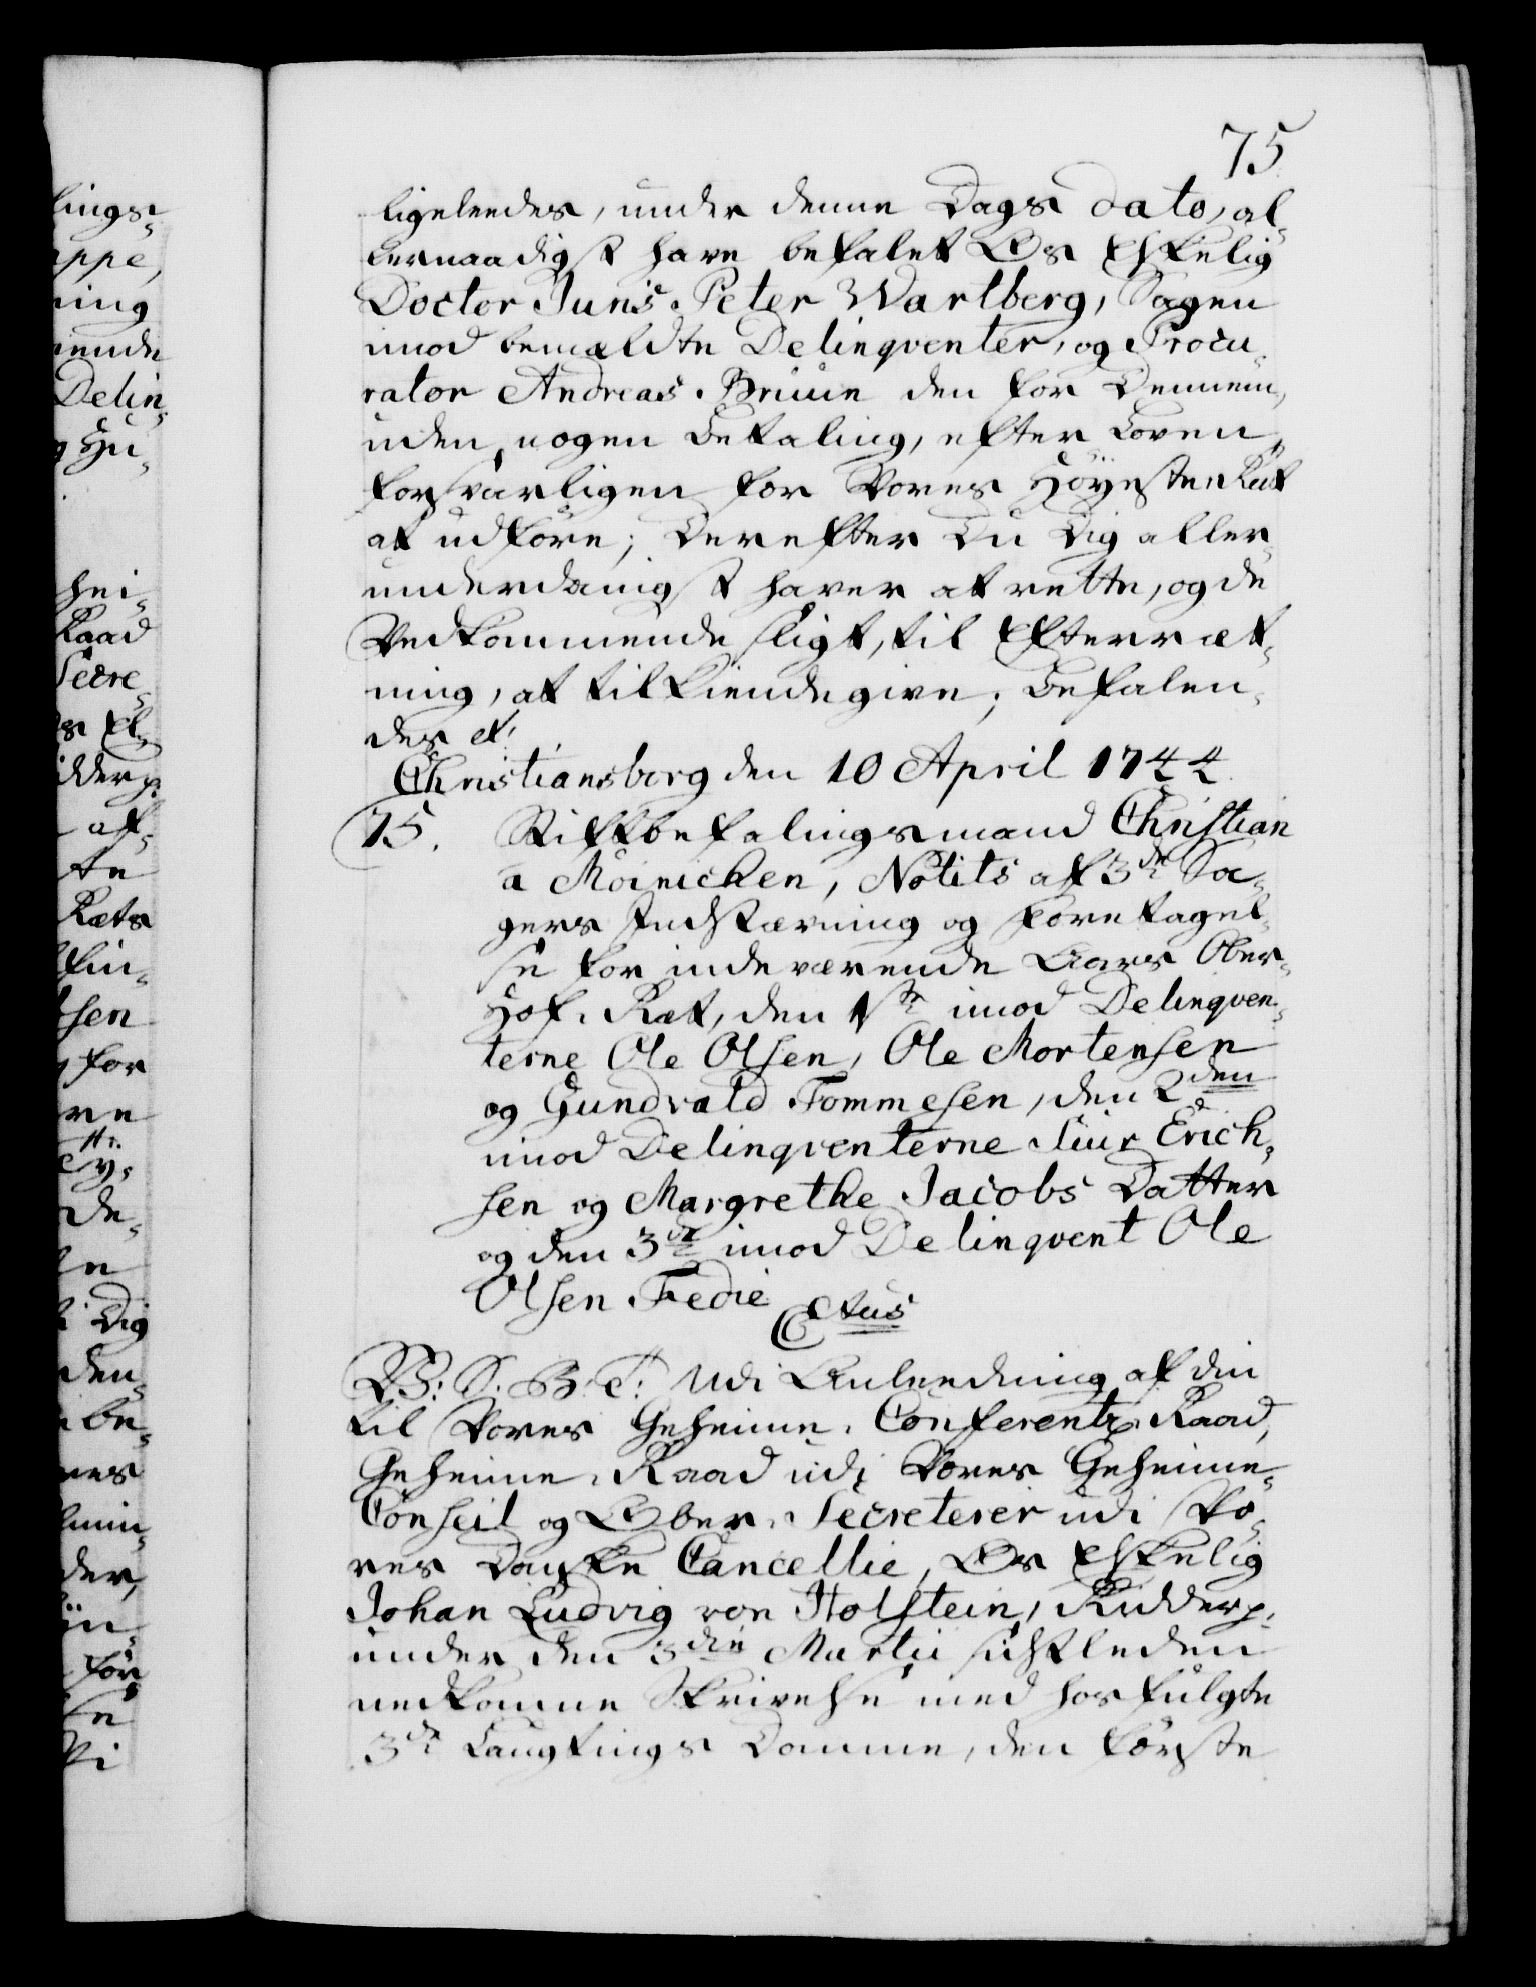 75
ligeleedes, under denne Dags Dato, al-
lernaadigst have befalet Os Elskelig
Doctor Juris Peter Wartberg, Sagen
imod bemældte Delinqventer, og Procu-
rator Andreas Bruun den for Dennem,
uden nogen Betaling, efter Loven,
forsvarligen for Vores Höyeste Ræt
at udføre; Derefter Du Dig aller-
underdanigst haver at rette, og de
Vedkommende sligt, til Efterræt-
ning, at tilkiendegive; Befalen-
des etc:
Christiansborg den 10 April 1744
75. Stiftbefalingsmand Christian
a Möinichen, Notits af 3de Sa-
gers Indstævning og Foretagel-
se for indeværende Aars Ober-
Hof-Ræt, den 1ste imod Delinqven-
terne Ole Olsen, Ole Mortensen
og Gundvald Tommesen, den 2den
imod Delinqventerne Siur Erich-
sen og Margrethe Jacobs Datter
og den 3de imod Delinqvent Ole
Olsen Fedie
Ctus
V.G.T. Udi Anleedning af din
til Vores Geheime-Conferentz-Raad,
Geheime-Raad udi Vores Geheime-
Conseil og Ober-Secreterer udi Vo-
res Danske Cancellie, Os Elskelig
Johan Ludvig von Holstein, Ridder p.
under den 3die Martii sidstleden
nedkomne Skrivelse med hosfulgte
3de Laugtings Domme, den første